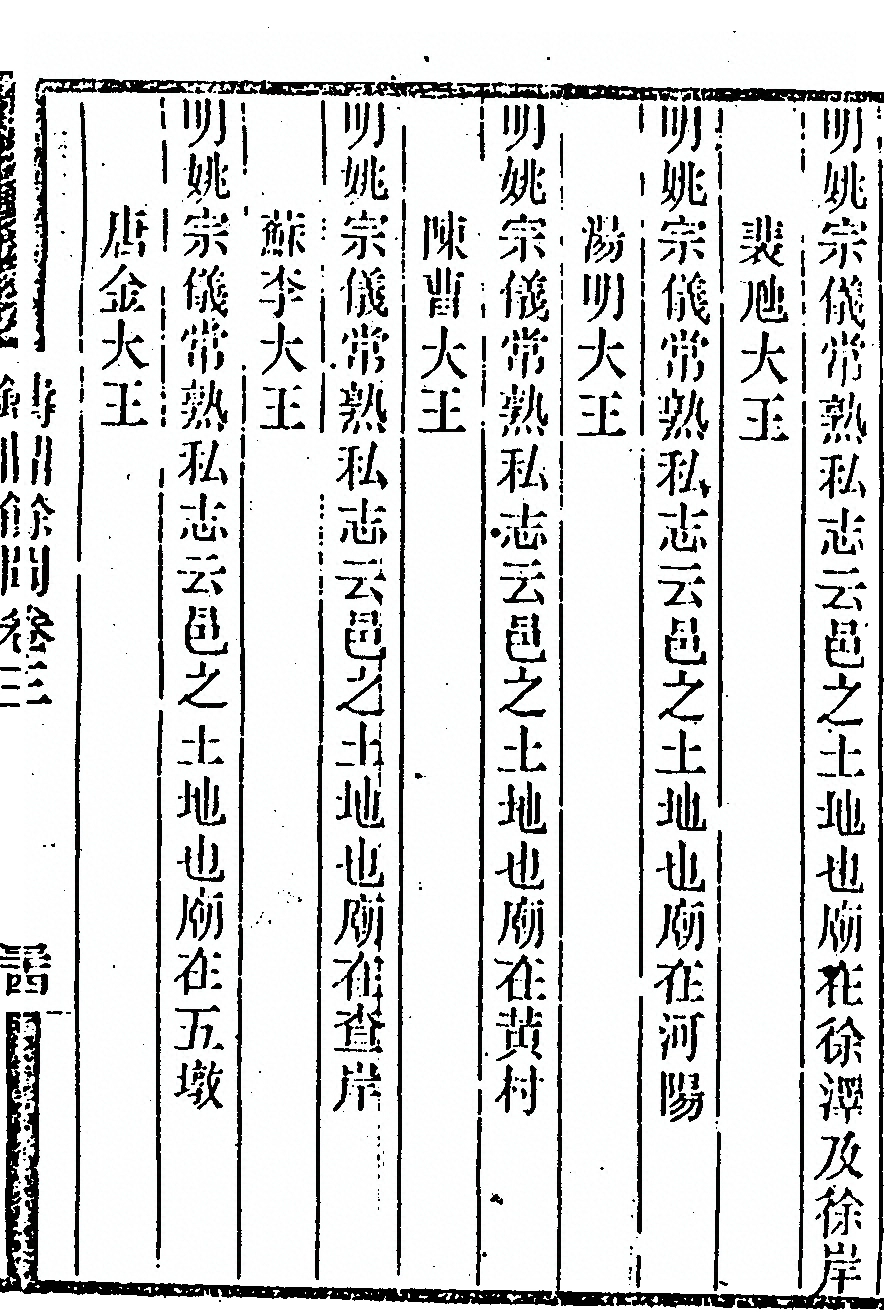 明姚宗儀常熟私志云邑之土地也廟在徐澤及徐岸
裴虺大王
明姚宗儀常熟私志云邑之土地也廟在河陽
湯明大王
明姚宗儀常熟私志云邑之土地也廟在黄村
陳曹大王
明姚宗儀常熟私志云邑之土地也廟在查岸
蘇李大王
明姚宗儀常熟私志云邑之土地也廟在五墩
唐金大王
餘 卷三